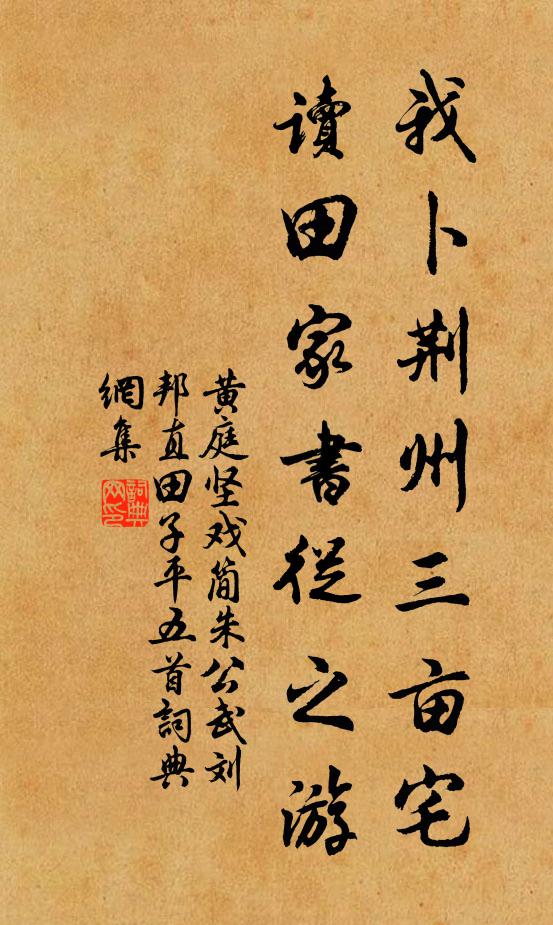 我卜荆州三亩宅
讀田家書從之游
黄庭坚戏简朱公武刘
邦直田子平五首詞典
網集
詞典
网印